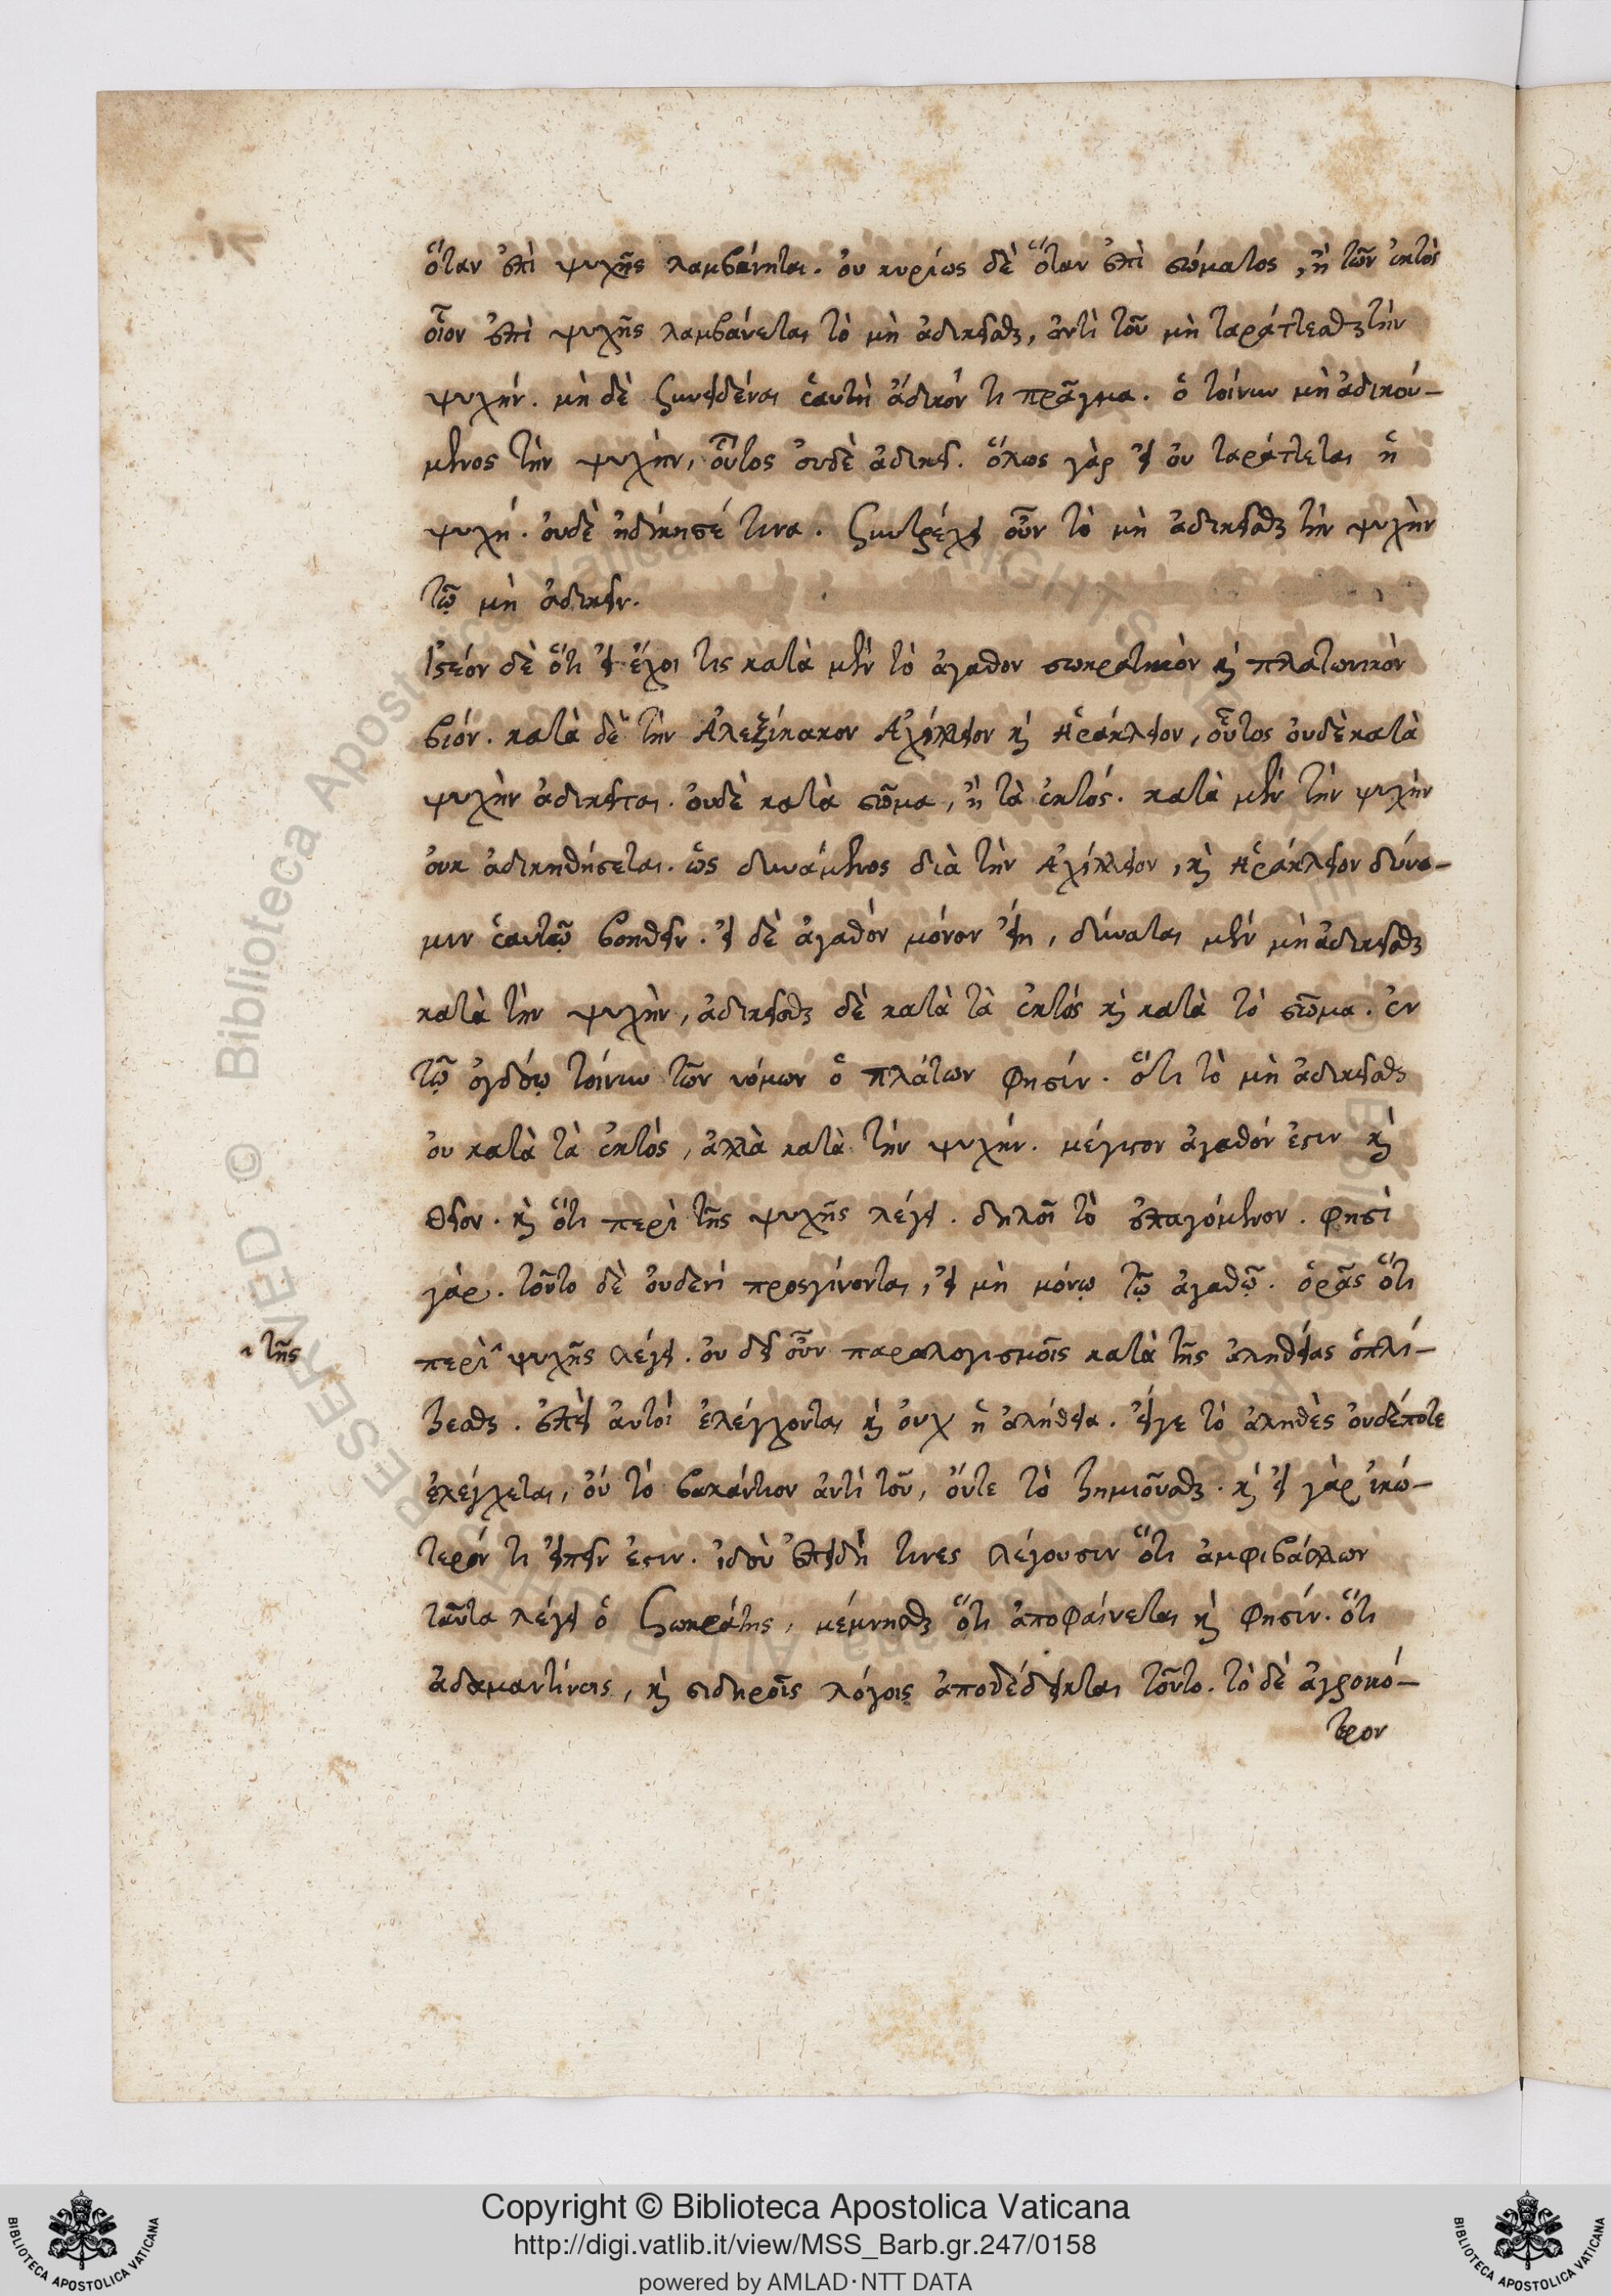 ὅταν ἐπὶ ψυχῆς λαμβάνηται. οὐ κυρίως δὲ ὅταν ἐπὶ σώματος, ἢ τῶν ἐκτὸς
οἷον ἐπὶ ψυχῆς λαμβάνεται τὸ μὴ ἀδικεῖσθαι, ἀντὶ τοῦ μὴ ταράττεσθαι τὴν
ψυχήν. μὴ δὲ ξυνειδέναι ἑαυτὴ ἄδικόν τι πρᾶγμα. ὁ τοίνυν μὴ ἀδικού-
μενος τὴν ψυχὴν, οὗτος οὐδὲ ἀδικεῖ. ὅπως γὰρ εἰ οὐ ταράττεται ἡ
ψυχή. οὐδὲ ἠδίκησέ τινα. ξυντρέχει οὖν τὸ μὴ ἀδικεῖσθαι τὴν ψυχὴν
τῷ μὴ ἀδικεῖν.
Ἰστέον δὲ ὅτι εἰ ἔχοι τις κατὰ μὲν τὸ ἀγαθον σωκρατικὸν καὶ πλατωνικὸν
βιόν. κατὰ δὲ τὴν Ἀλεξίκακον Ἀχίλλειον καὶ Ἡράκλειον, οὗτος οὐδὲ κατὰ
ψυχὴν ἀδικεῖται. οὐδὲ κατὰ σῶμα, ἢ τὰ ἐκτός. κατὰ μὲν τὴν ψυχὴν
οὐκ ἀδικηθήσεται. ὡς δυνάμενος διὰ τὴν Ἀχίλλειον, καὶ Ἡράκλειον δύνα-
μιν ἑαυτῷ βοηθεῖν. εἰ δὲ ἀγαθόν μόνον εἴη, δύναται μὲν μὴ ἀδικεῖσθαι
κατὰ τὴν ψυχὴν, ἀδικεῖσθαι δὲ κατὰ τὰ ἐκτός καὶ κατὰ τὸ σῶμα. ἐν
τῷ ὀγδόῳ τοίνυν τῶν νόμων ὁ πλάτων φησίν. ὅτι τὸ μὴ ἀδικεῖσθαι
οὐ κατὰ τὰ ἐκτὸς, ἀλλὰ κατὰ τὴν ψυχήν. μέγιστον ἀγαθόν ἐστιν καὶ
θεῖον. καὶ ὅτι περὶ τῆς ψυχῆς λέγει. δηλοῖ τὸ ἐπαγόμενον. φησὶ
γὰρ. τοῦτο δὲ οὐδενί προσγίνονται, εἰ μὴ μόνῳ τῷ ἀγαθῷ. ὁρᾷς ὅτι
περὶ ψυχῆς λέγει. οὐ δεῖ οὖν παραλογισμοῖς κατὰ τῆς ἀληθείας ὁπλί-
τῆς
ζεσθαι. ἐπεὶ αὐτοὶ ἐλέγχονται καὶ οὐχ ἡ ἀλήθεια. εἴγε τὸ ἀληθὲς οὐδέποτε
ἐλέγχεται, οὐ τὸ βαλάντιον ἀντὶ τοῦ, οὔτε τὸ ζημιοῦσθαι. καὶ εἰ γὰρ ἰκώ-
τερόν τι εἰπεῖν ἐστιν. ἰδοὺ ἐπειδή τινες λέγουσιν ὅτι ἀμφιβάλλων
ταῦτα λέγει ὁ Σωκράτης, μέμνησθαι ὅτι ἀποφαίνεται καὶ φησίν. ὅτι
ἀδαμαντίνοις, καὶ σιδηροῖς λόγοις ἀποδέδεικται τοῦτο. τὸ δὲ ἀγροικό-
τερον
Copyright © Biblioteca Apostolica Vaticana
http://digi.vatlib.it/view/MSS_Barb.gr.247/0158
powered by AMLAD·NTT DATA